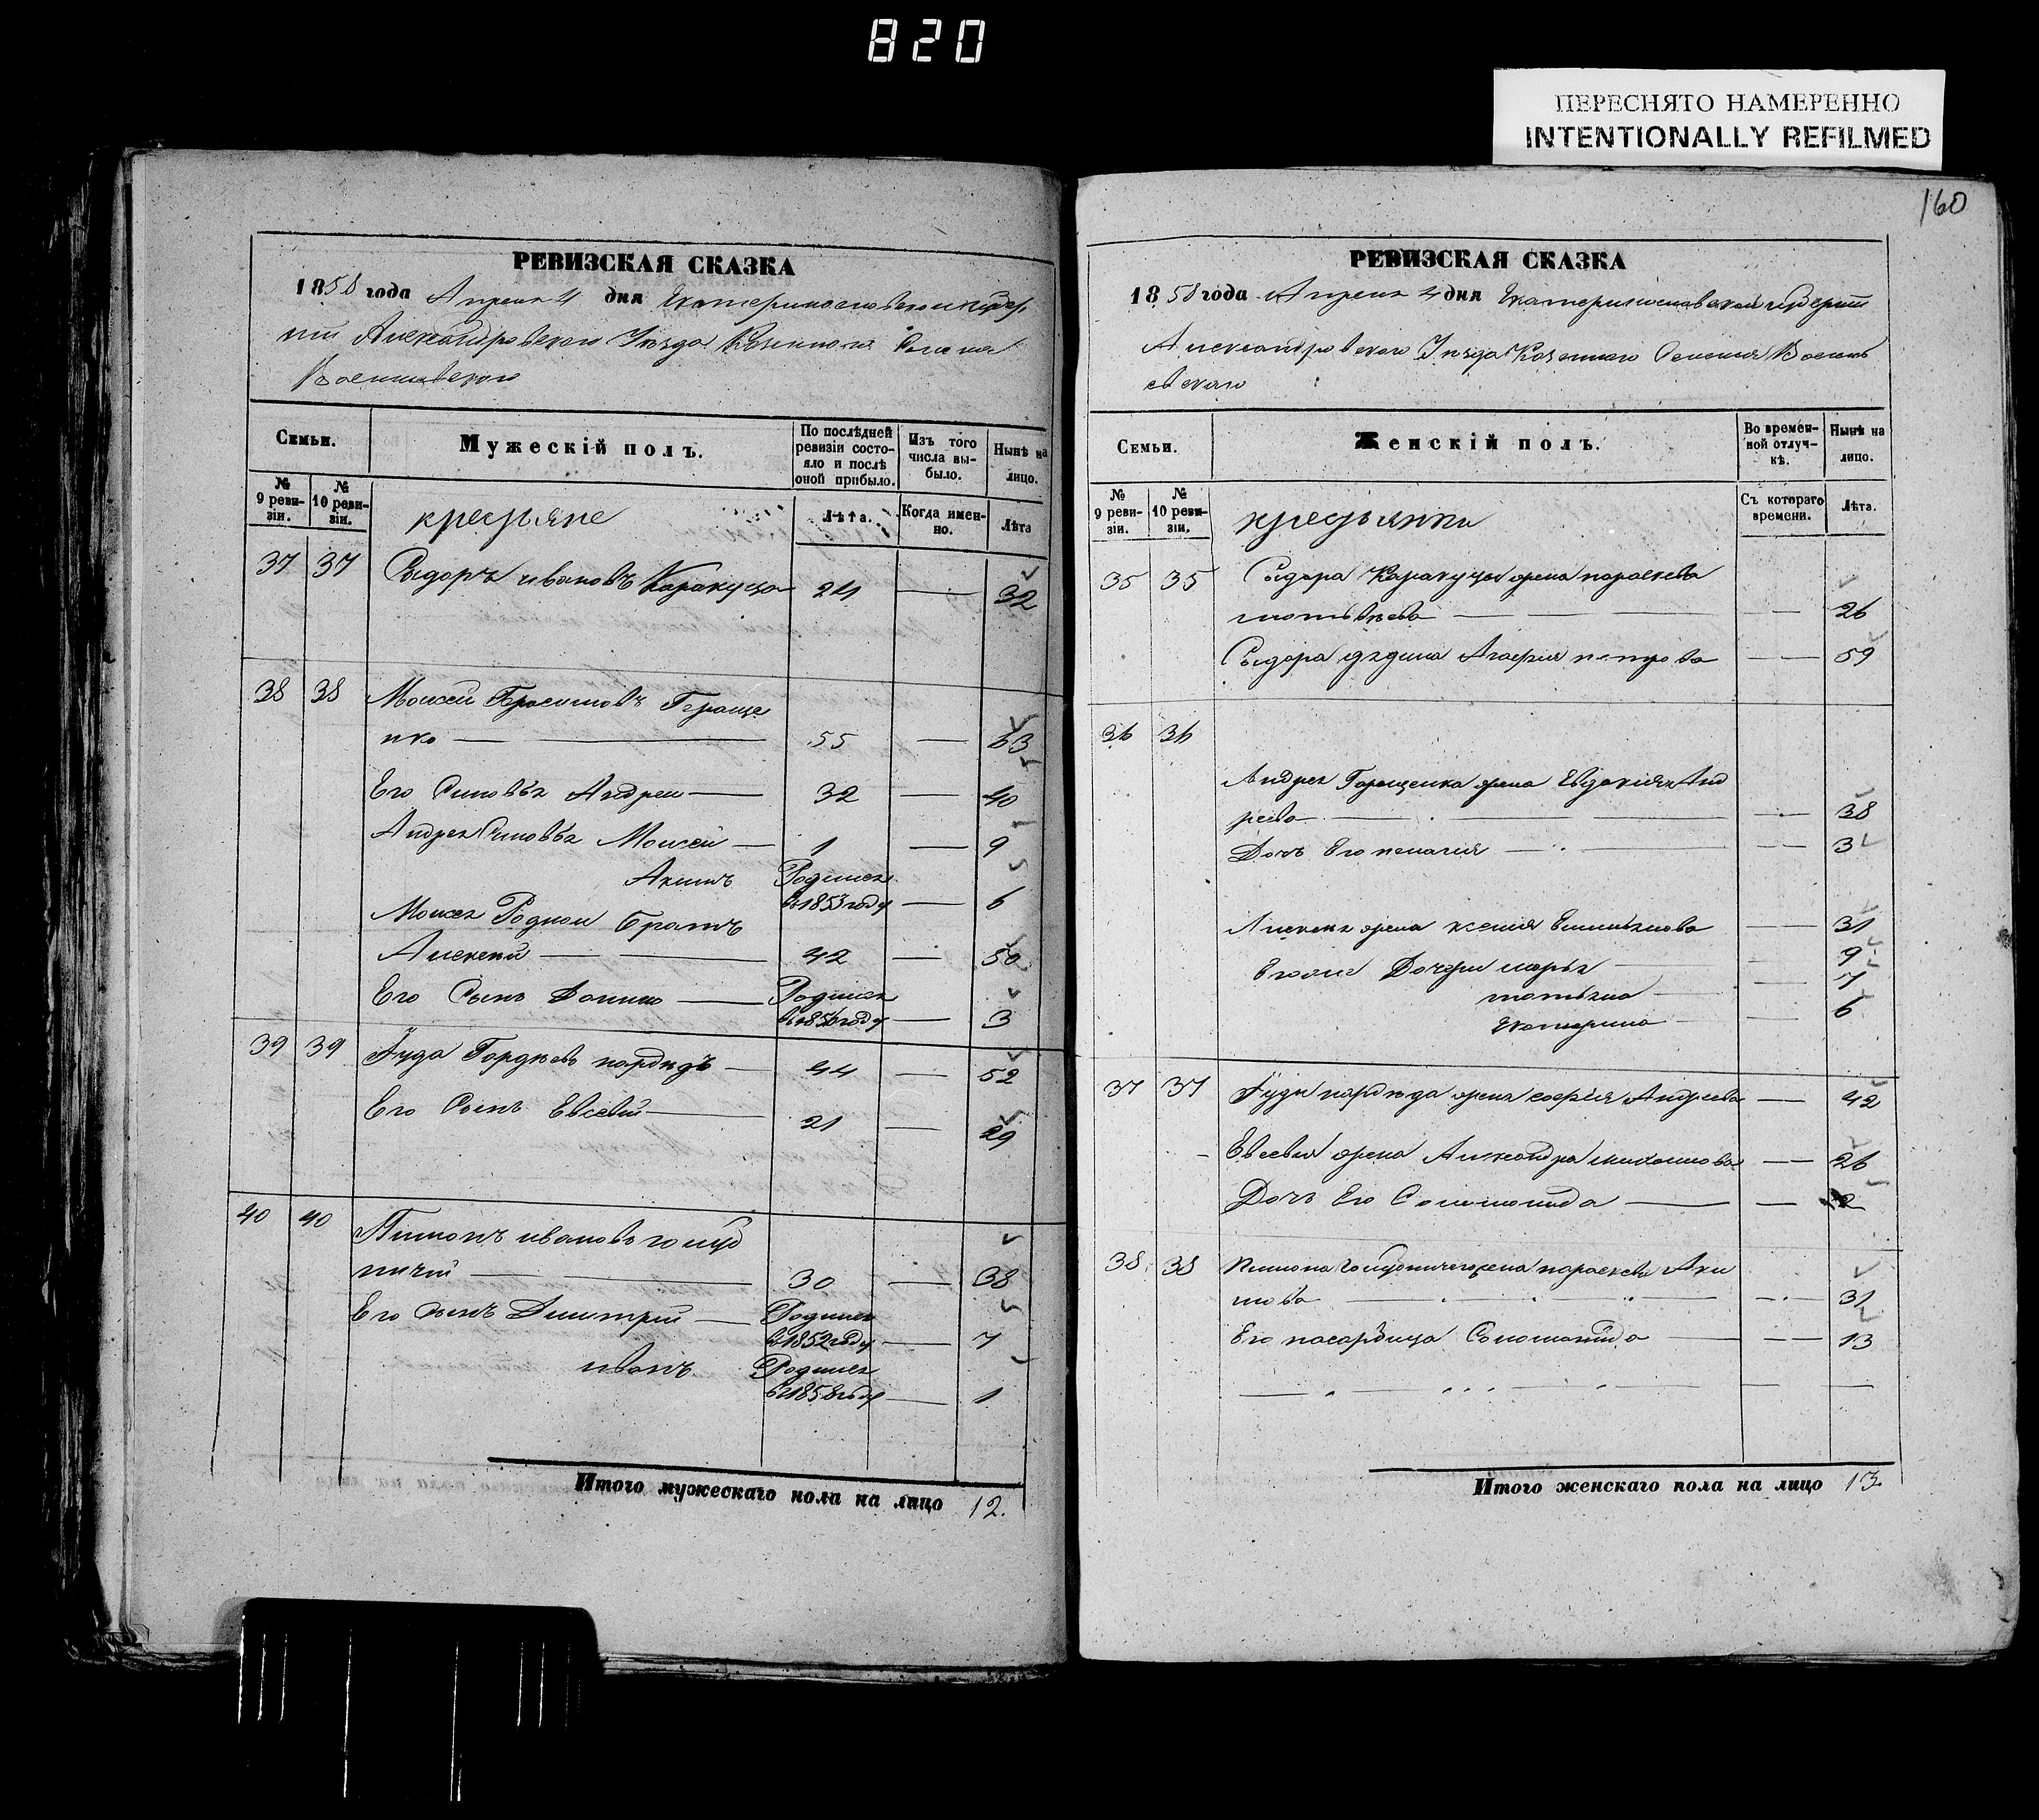 820
ПЕРЕСНЯТО НАМЕРЕННО
INTENTIONALLY REFILMED
160
РЕВИЗСКАЯ СКАЗКА
1858 года Апреля 4 дня Екатеринославской Губер
нии Александровского Уезда Казенного Селения
РЕВИЗСКАЯ СКАЗКА
1858 года Апреля 4 дня Екатеринославской губернии
Александровского Уезда Казенного Селения
Семьи.
Мужескій полъ.
По послѣдней ревизіи состояло и послѣ оной прибыло.
Изъ того числа выбыло.
Нынѣ на лицо.
№ 9 ревизіи.
№ 10 ревизіи.
крестьяне
Лѣта.
Когда именно.
Лѣта
37 37 Сыдоръ ивановъ Каракуца 24 — 32
38 38 Моисей Герасимовъ Гераще
нко — 55 — 63
Его Синовья Андрей — 32 — 40
Андрея Синовья Моисей — 1 — 9
Акимъ Родился
въ 1853 году — 6
Моисея Родной братъ
Алексей — 42 — 50
Его Сынъ Данило — Родился
въ 1856 году — 3
39 39 Іуда Гордѣевъ — 44 — 52
Его Сынъ Евсевій — 21 — 29
40 40 Пимонъ ивановъ голуб
ничій — 30 — 38
Его сынъ Димитрій — Родился
въ 1852 году — 7
иванъ Родился
въ 1858 году — 1
Итого мужескаго пола на лицо 12.
Семьи.
Женскій полъ.
Во временной отлучкѣ.
Нынѣ на лицо.
№ 9 ревизіи.
№ 10 ревизіи.
крестьянки
Съ котораго времени.
Лѣта.
35 35 Сыдора Каракуцы жена параскева
матвѣева — — 26
Сыдора Агафия петрова — 59
36 36
Андрея Геращенка жена Евдокия Анд
реева — — 38
Дочь Его пелагия — — 3
Алексея жена ксения Емильянова — 31
Егоже Дочери марья — 9
татьяна — 7
Екатерина — 6
37 37 Іуды жена софія Андреева — 42
Евсевія жена Александра михаилова — 26
Дочь Его Соломонида — — 2
38 38 Пимона голубничего жена параскева Аки
мова — — 31
Его Соломонида — — 13
Итого женскаго пола на лицо 13